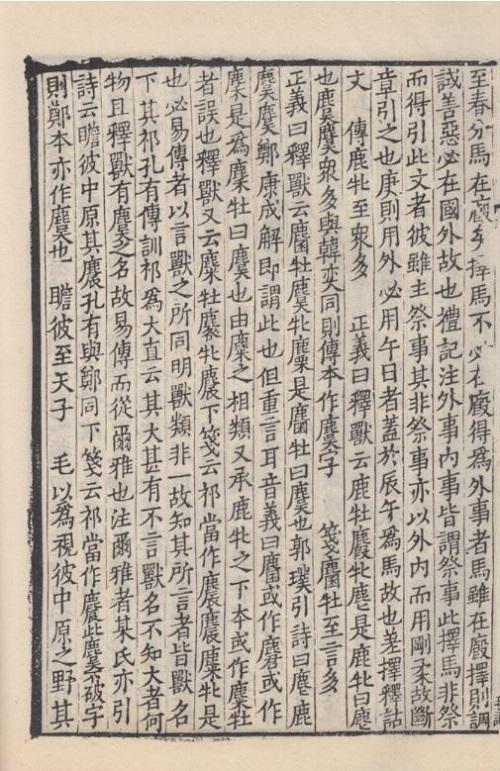 至春分馬在廄矣擇馬不必在廄得為外事者馬雖在廄擇則調
誠善惡必在國外故也禮記注外事內事皆謂祭事此擇馬非祭
而得引此文者彼雖主祭事其非祭事亦以外內而用剛柔故斷
章引之也庚則用外必用午日者蓋於辰午為馬故也差擇釋詁
文　傳鹿牝至衆多　正義曰釋獸云鹿牡麚牝麀是鹿牝曰麀
也麌麌衆多與韓奕同則傳本作麌字　箋麕牡至言多
正義曰釋獸云麕牡麌牝麜是麕牡曰麌也郭璞引詩曰麀鹿
麌麌鄭康成解即謂此也但重言耳音義曰麕或作麏或作
麇是為麇牡曰麌也由麇之相類又承鹿牝之下本或作麇牡
者誤也釋獸又云麋牡麔牝麎下箋云祁當作麎麎麋牝是
也必易傳者以言獸之所同明獸類非一故知其所言者皆獸名
下其祁孔有傳訓祁為大直云其大甚有不言獸名不知大者何
物且釋獸有麎之名故易傳而從爾雅也注爾雅者某氏亦引
詩云瞻彼中原其麎孔有與鄭同下箋云祁當作麎此麌不破字
則鄭本亦作麌也　瞻彼至天子　毛以為視彼中原之野其